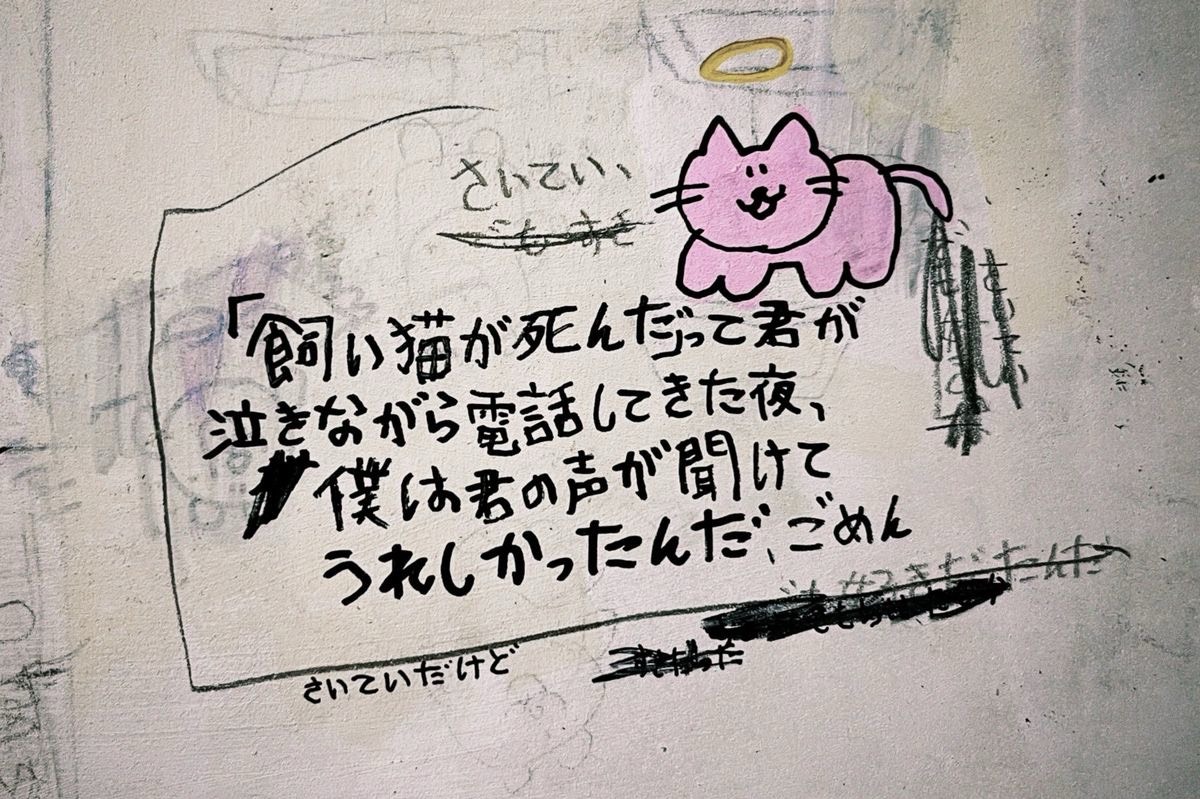 さいてい、
「飼い猫が死んだって君が
泣きながら電話してきた夜、
僕は君の声が聞けて
うれしかったんだ、ごめん
好きだったんだ
さいていだけど